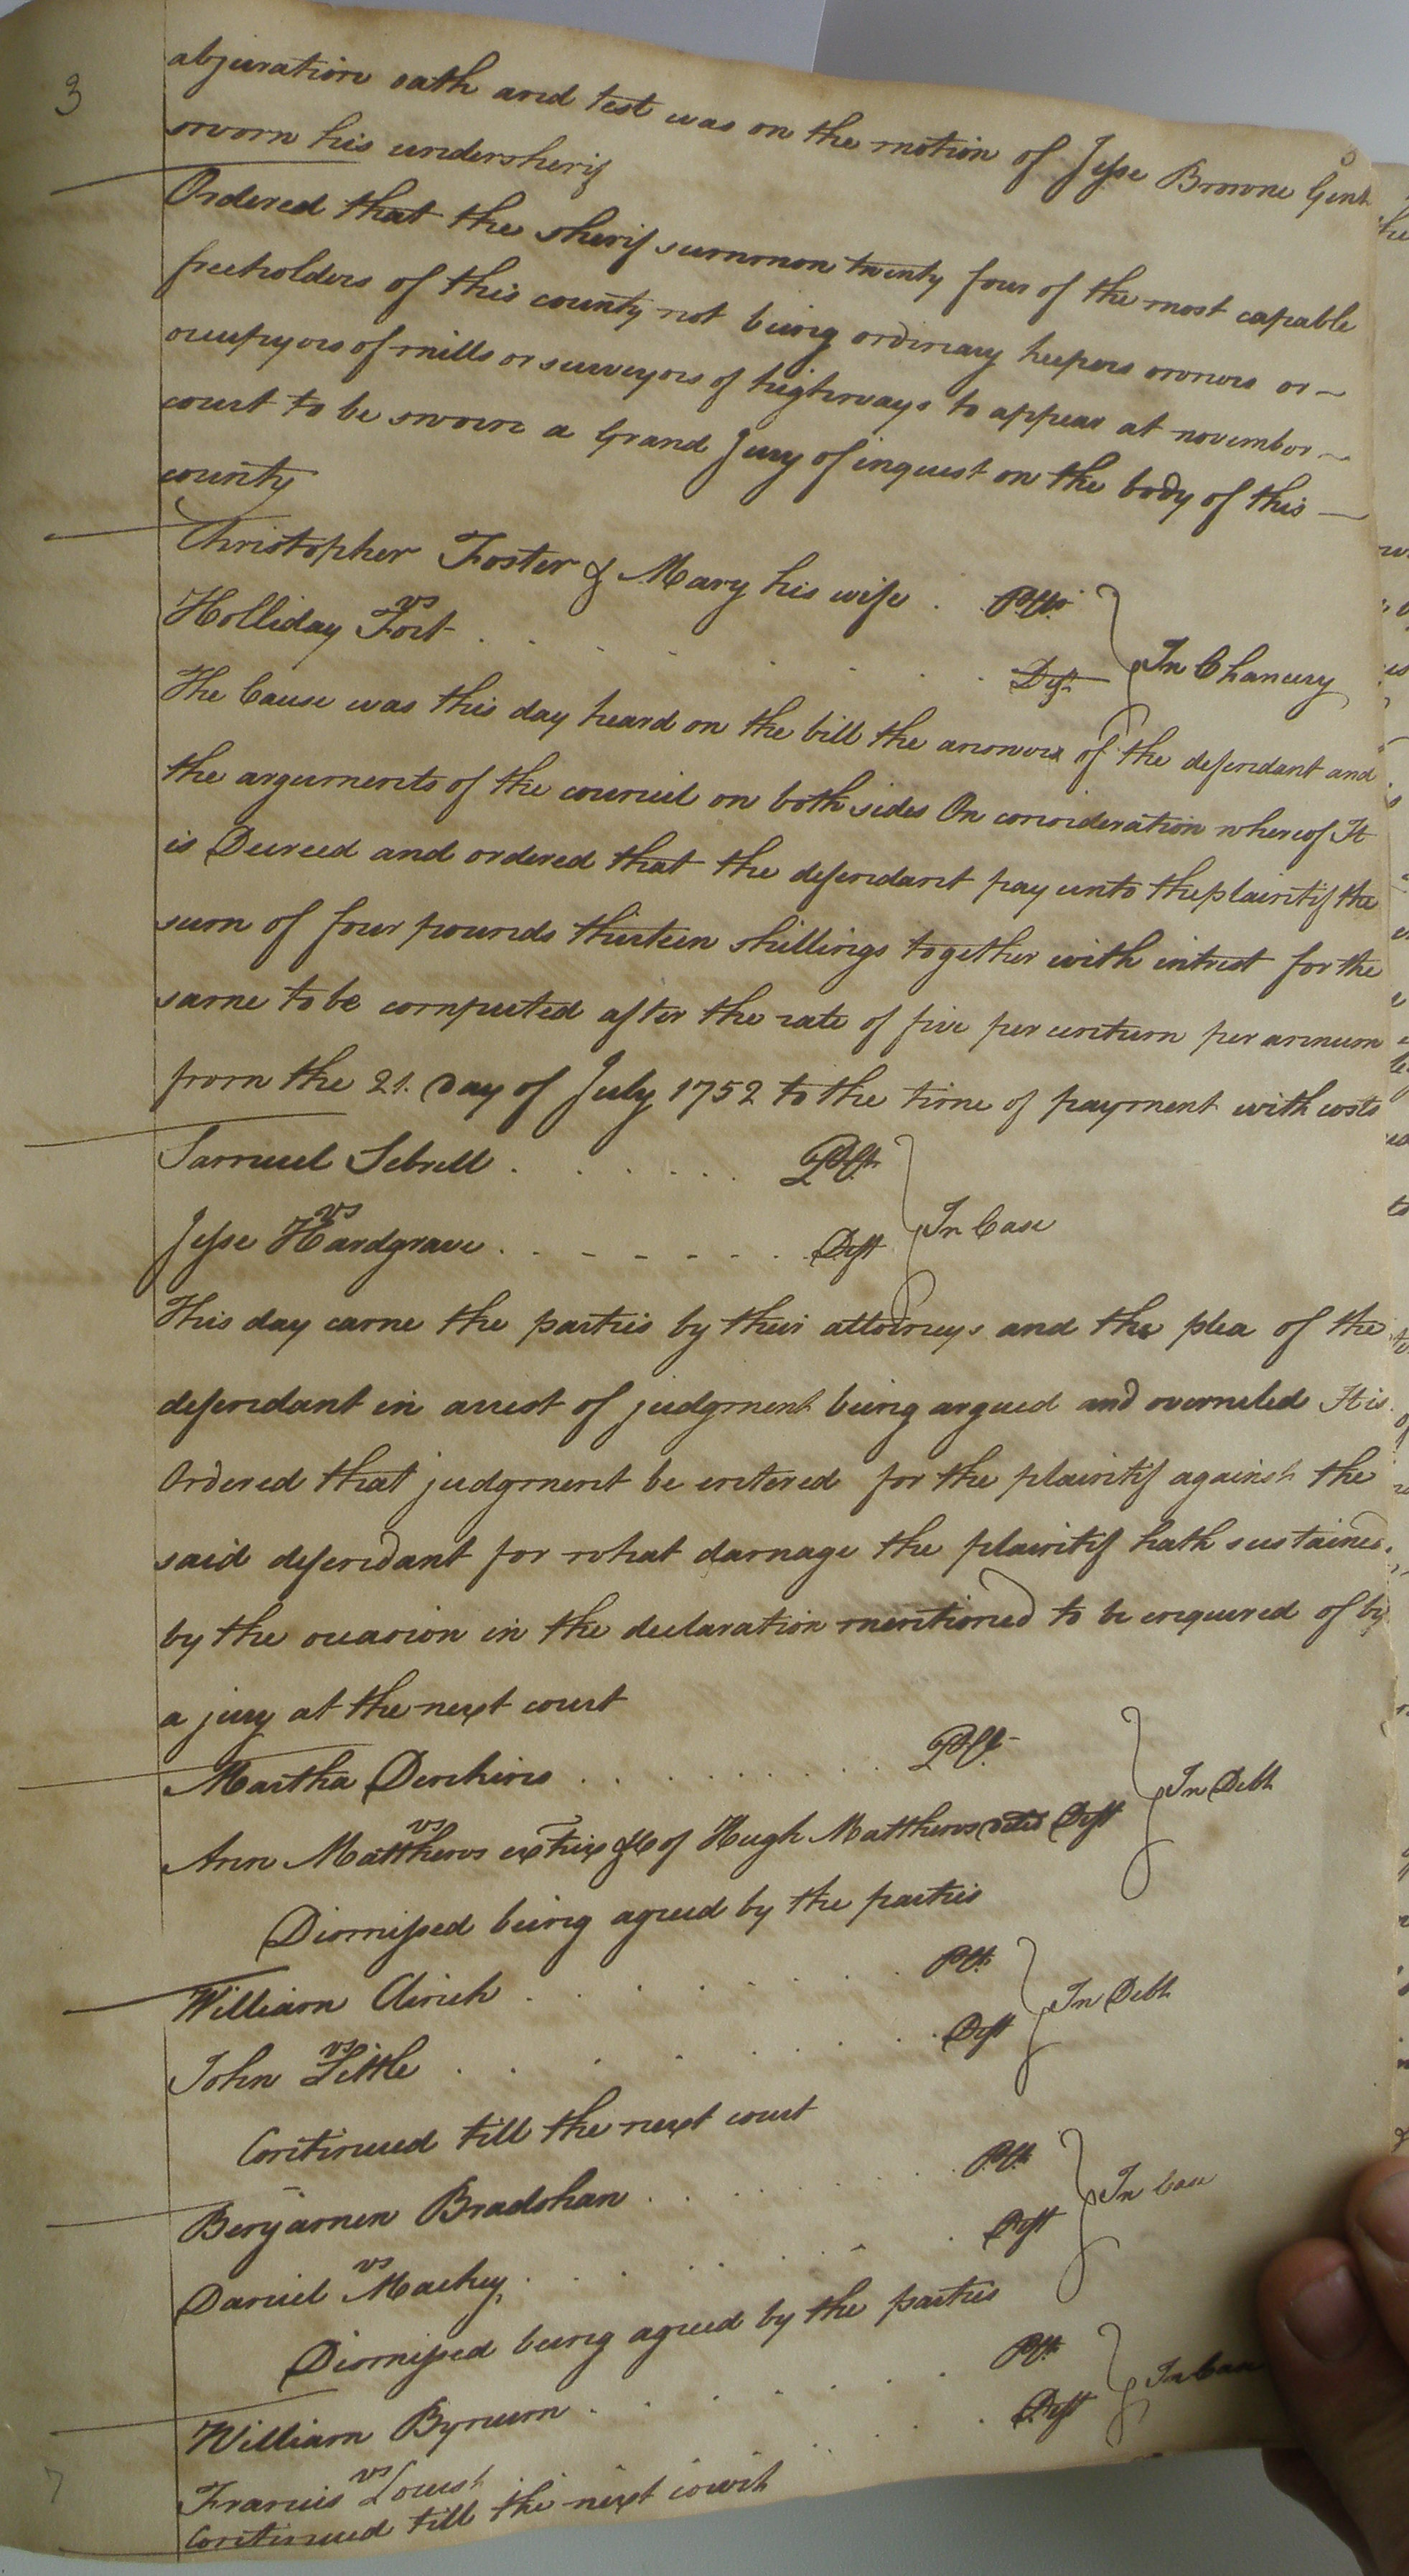 3
abjuration oath and test was on the motion of Jesse Browne Gent
sworn his undersherif
Ordered that the sherif summon twenty four of the most capable
freeholders of this county not being ordinary keepers owners or
occupyors of mills or surveyors of highways to appear at novembor
court to be sworn a Grand Jury of inquest on the body of this
county
Christopher Foster & Mary his wife . . Plts
vs
Holliday Fort . . . . . . . Deft
In Chancery
The Cause was this day heard on the bill the answer of the defendant and
the arguments of the council on both sides On consideration whereof It
is Decreed and ordered that the defendant pay unto the plaintif the
sum of four pounds thirteen shillings together with intrest for the
same to be computed after the rate of five per centum per annum
from the 21. Day of July 1752 to the time of payment with costs
Samuel Sebrell . . . . . . Plt
vs
Jesse Hardgrave . . . . . . . Deft
In Case
This day came the parties by their attorneys and the plea of the
defendant in arrest of judgment being argued and overruled It is
Ordered that judgment be entered for the plaintif against the
said defendant for what damage the plaintif hath sustained
by the occasion in the declaration mentioned to be enquired of by
a jury at the next court
Martha Denkins . . . . . . . . . Plt
vs
Ann Matthews extrix &c of Hugh Matthews decd Deft
In Debt
Dismissed being agreed by the parties
William Clinch . . . . . . . Plt
vs
John Little . . . . . . . . Deft
In Debt
Continued till the next court
Benjamen Bradshaw . . . . . . Plt
vs
Daniel Mackey . . . . . . . Deft
In Case
Dismissed being agreed by the parties
William Bynum . . . . . . Plt
vs
Francis Loust . . . . . . Deft
In Case
Continued till the next court
7